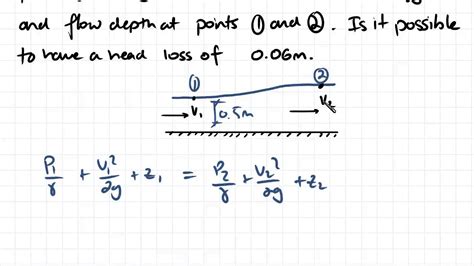 and flow depth at points ① and ②. Is it possible
to have a head loss of 0.06m.
① ②
V₁ 0.5m V₂
P₁/γ + V₁²/2g + z₁ = P₂/γ + V₂²/2g + z₂